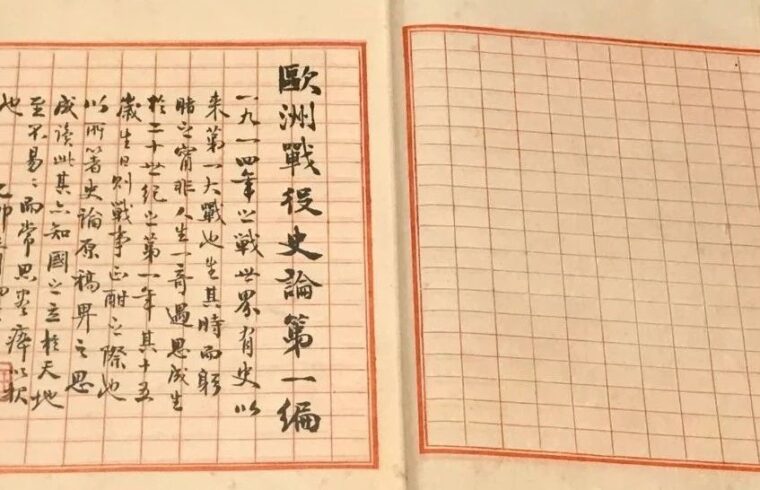 歐洲戰役史論第一編
一九一四年之戰世界有史以
来第一大戰也生其時而躬
睹之甯非人生一奇遇思成生
於二十世紀之第一年其十五
歲生日則戰事正酣之際也
以所著史論原稿畀之思
成讀此其亦知國之立於天地
至不易〻而常思盡瘁以報
也 乙卯